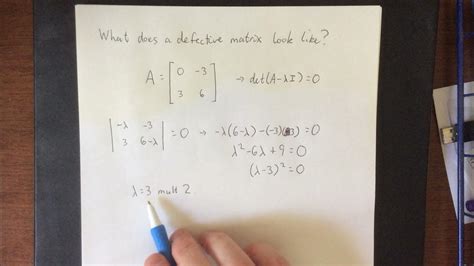 What does a defective matrix look like?
A = [ 0 -3 ; 3 6 ] → det(A-λI)=0
| -λ -3 ; 3 6-λ | = 0 → -λ(6-λ)-(-3)(3)=0
λ²-6λ+9=0
(λ-3)²=0
λ=3 mult 2